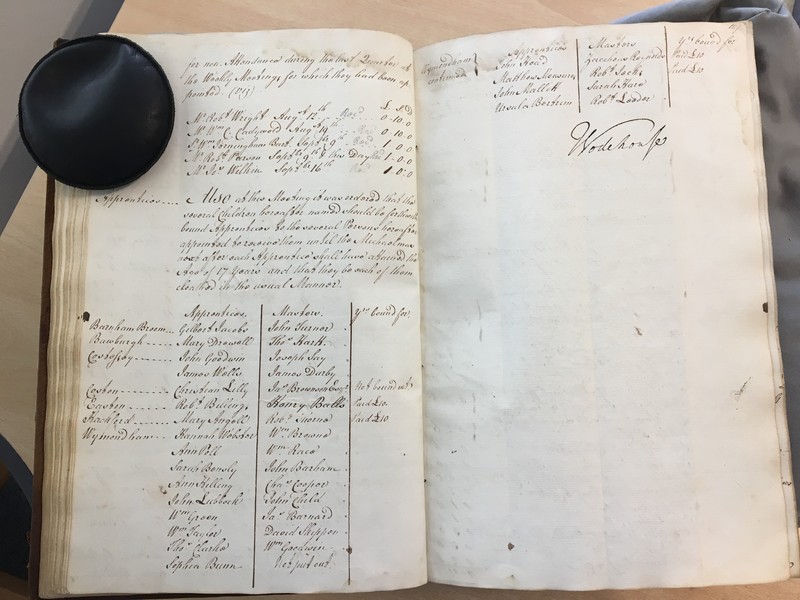 for non Attendance during the last Quarter at
the Weekly Meetings for which they had been ap
pointed.
£ S D
Mr. Robt. Wright Augt. 12th 0 " 10 " 0
Mr. Wm. C. Augt. 19th 0 " 10 " 0
Sr. Wm. Jerningham Bart. Septr. 9th 1 " 0 " 0
Mr. Robt. Parson Septr. 9th & this Day 1 " 0 " 0
Mr. Jos. Wilkin Septr. 16th 1 " 0 " 0
Apprentices .... Also at this Meeting it was ordered that the
several Children hereafter named should be forthwith
bound Apprentices to the several Persons hereafter
appointed to receive them until the Michaelmas
next after each Apprentice shall have attained the
Age of 17 Years and that they be each of them
cloathed in the usual Manner.
Apprentices. Masters. Yrs. bound for.
Barnham Broom... Gilbert Jacobs John Turner
Bawburgh ------ Mary Drewell Thos. Hart
Costessey ------ John Goodwin Joseph Say
James Wells James Darby
Coston ------ Christian Lilly Jas. Brownson Esqr. Not bound out
Easton ------ Robt. Billing Henry Balls Paid £10
Hackford ------ Mary Angell Robt. Paid £10
Wymondham ---- Hannah Webster Wm. Browne
Ann Wm. Race
Sarah John Barham
Ann Chas. Cooper
John Lubbock John Child
Wm. Green Jas. Barnard
Wm. Taylor David Skipper
Thos. Clarke Wm. Goodwin
Sophia Bunn Not put out
Wymondham continued Apprentices Masters Yrs. bound for
John Head Zacheus Paid £10
Matthew Newson Robt. Paid £10
John Mallett Sarah Hare
Ursula Bertram Robt. Loader
Wodehouse